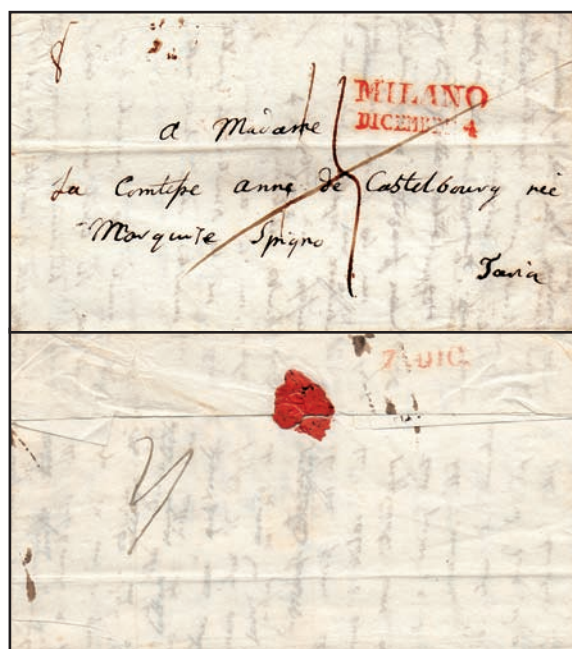 8
MILANO
DICEMBRE 4
a Madame
La Comtesse anne de Castelbourg née
Marquise Spigno
7. DIC.